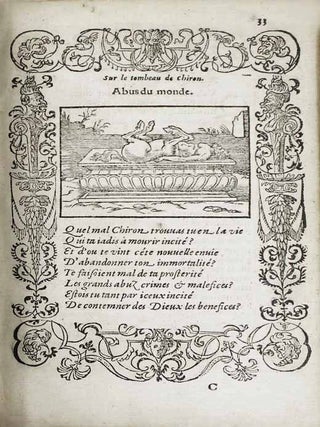 33
Sur le tombeau de Chiron.
Abus du monde.
Quel mal Chiron trouuas tu en la vie
Qui t'a iadis à mourir incité?
Et d'ou te vint céte nouuelle enuie
D'abandonner ton immortalité?
Te faisoient mal de ta prosterité
Les grands abuz crimes & malefices?
Estois tu tant par iceux incité
De contemner des Dieux les benefices?
C